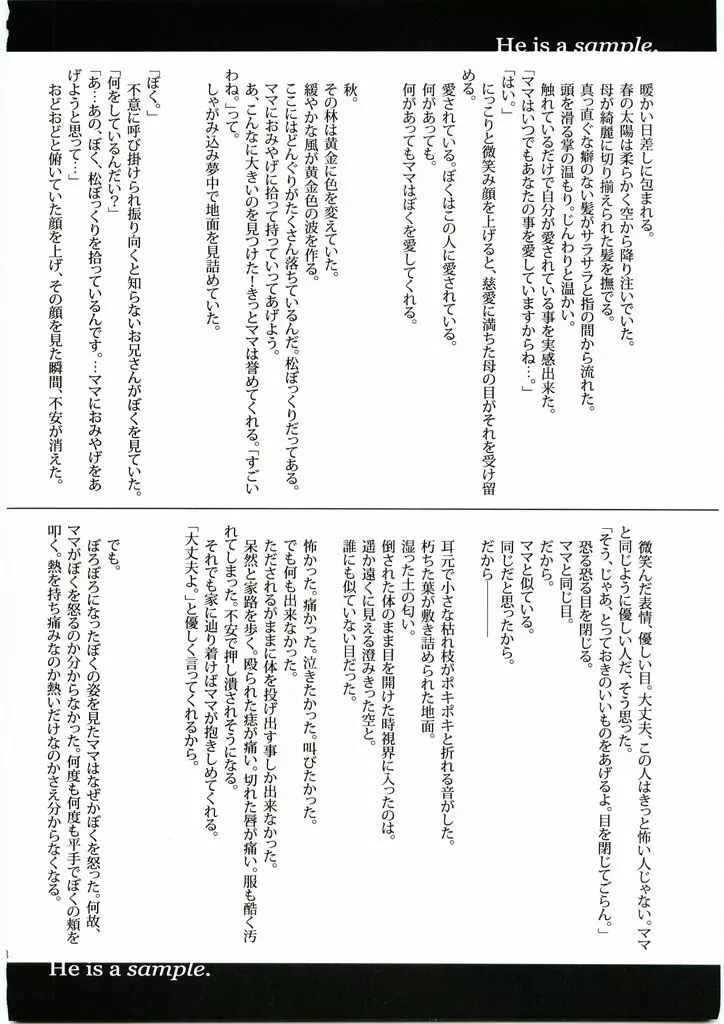 He is a sample.
暖かい日差しに包まれる。
春の太陽は柔らかく空から降り注いでいた。
母が綺麗に切り揃えられた髪を撫でる。
真っ直ぐな癖のない髪がサラサラと指の間から流れた。
頭を滑る掌の温もり。じんわりと温かい。
触れているだけで自分が愛されている事を実感出来た。
「ママはいつでもあなたの事を愛していますからね…。」
「はい。」
にっこりと微笑み顔を上げると、慈愛に満ちた母の目がそれを受け留
める。
愛されている。ぼくはこの人に愛されている。
何があっても。
何があってもママはぼくを愛してくれる。
秋。
その林は黄金に色を変えていた。
緩やかな風が黄金色の波を作る。
ここにはどんぐりがたくさん落ちているんだ。松ぼっくりだってある。
ママにおみやげに拾って持っていってあげよう。
あ、こんなに大きいのを見つけた!きっとママは誉めてくれる。「すごい
わね。」って。
しゃがみ込み夢中で地面を見詰めていた。
「ぼく。」
不意に呼び掛けられ振り向くと知らないお兄さんがぼくを見ていた。
「何をしているんだい?」
「あ…あの、ぼく、松ぼっくりを拾っているんです。…ママにおみやげをあ
げようと思って…」
おどおどと俯いていた顔を上げ、その顔を見た瞬間、不安が消えた。
微笑んだ表情、優しい目。大丈夫、この人はきっと怖い人じゃない。ママ
と同じように優しい人だ、そう思った。
「そう、じゃあ、とっておきのいいものをあげるよ。目を閉じてごらん。」
恐る恐る目を閉じる。
ママと同じ目。
だから。
ママと似ている。
同じだと思ったから。
だから――
耳元で小さな枯れ枝がポキポキと折れる音がした。
朽ちた葉が敷き詰められた地面。
湿った土の匂い。
倒された体のまま目を開けた時視界に入ったのは。
遥か遠くに見える澄みきった空と。
誰にも似ていない目だった。
怖かった。痛かった。泣きたかった。叫びたかった。
でも何も出来なかった。
ただされるがままに体を投げ出す事しか出来なかった。
呆然と家路を歩く。殴られた痣が痛い。切れた唇が痛い。服も酷く汚
れてしまった。不安で押し潰されそうになる。
それでも家に辿り着けばママが抱きしめてくれる。
「大丈夫よ。」と優しく言ってくれるから。
でも。
ぼろぼろになったぼくの姿を見たママはなぜかぼくを怒った。何故、
ママがぼくを怒るのか分からなかった。何度も何度も平手でぼくの頬を
叩く。熱を持ち痛みなのか熱いだけなのかさえ分からなくなる。
He is a sample.